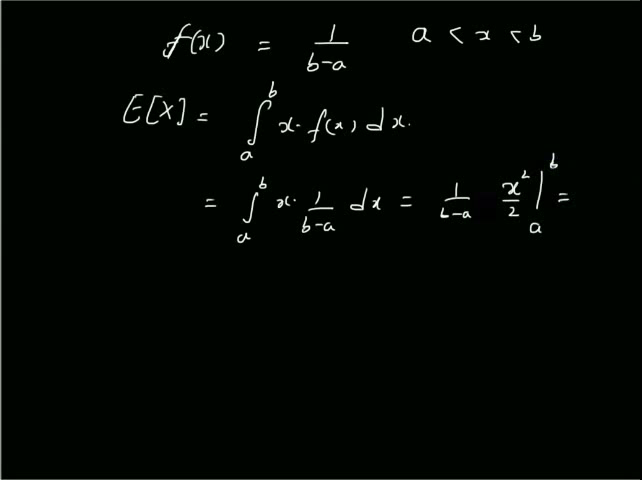 f(x) = 1/(b-a) a < x < b
E[X] = ∫_a^b x. f(x) dx.
= ∫_a^b x. 1/(b-a) dx = 1/(b-a) x²/2 |_a^b =